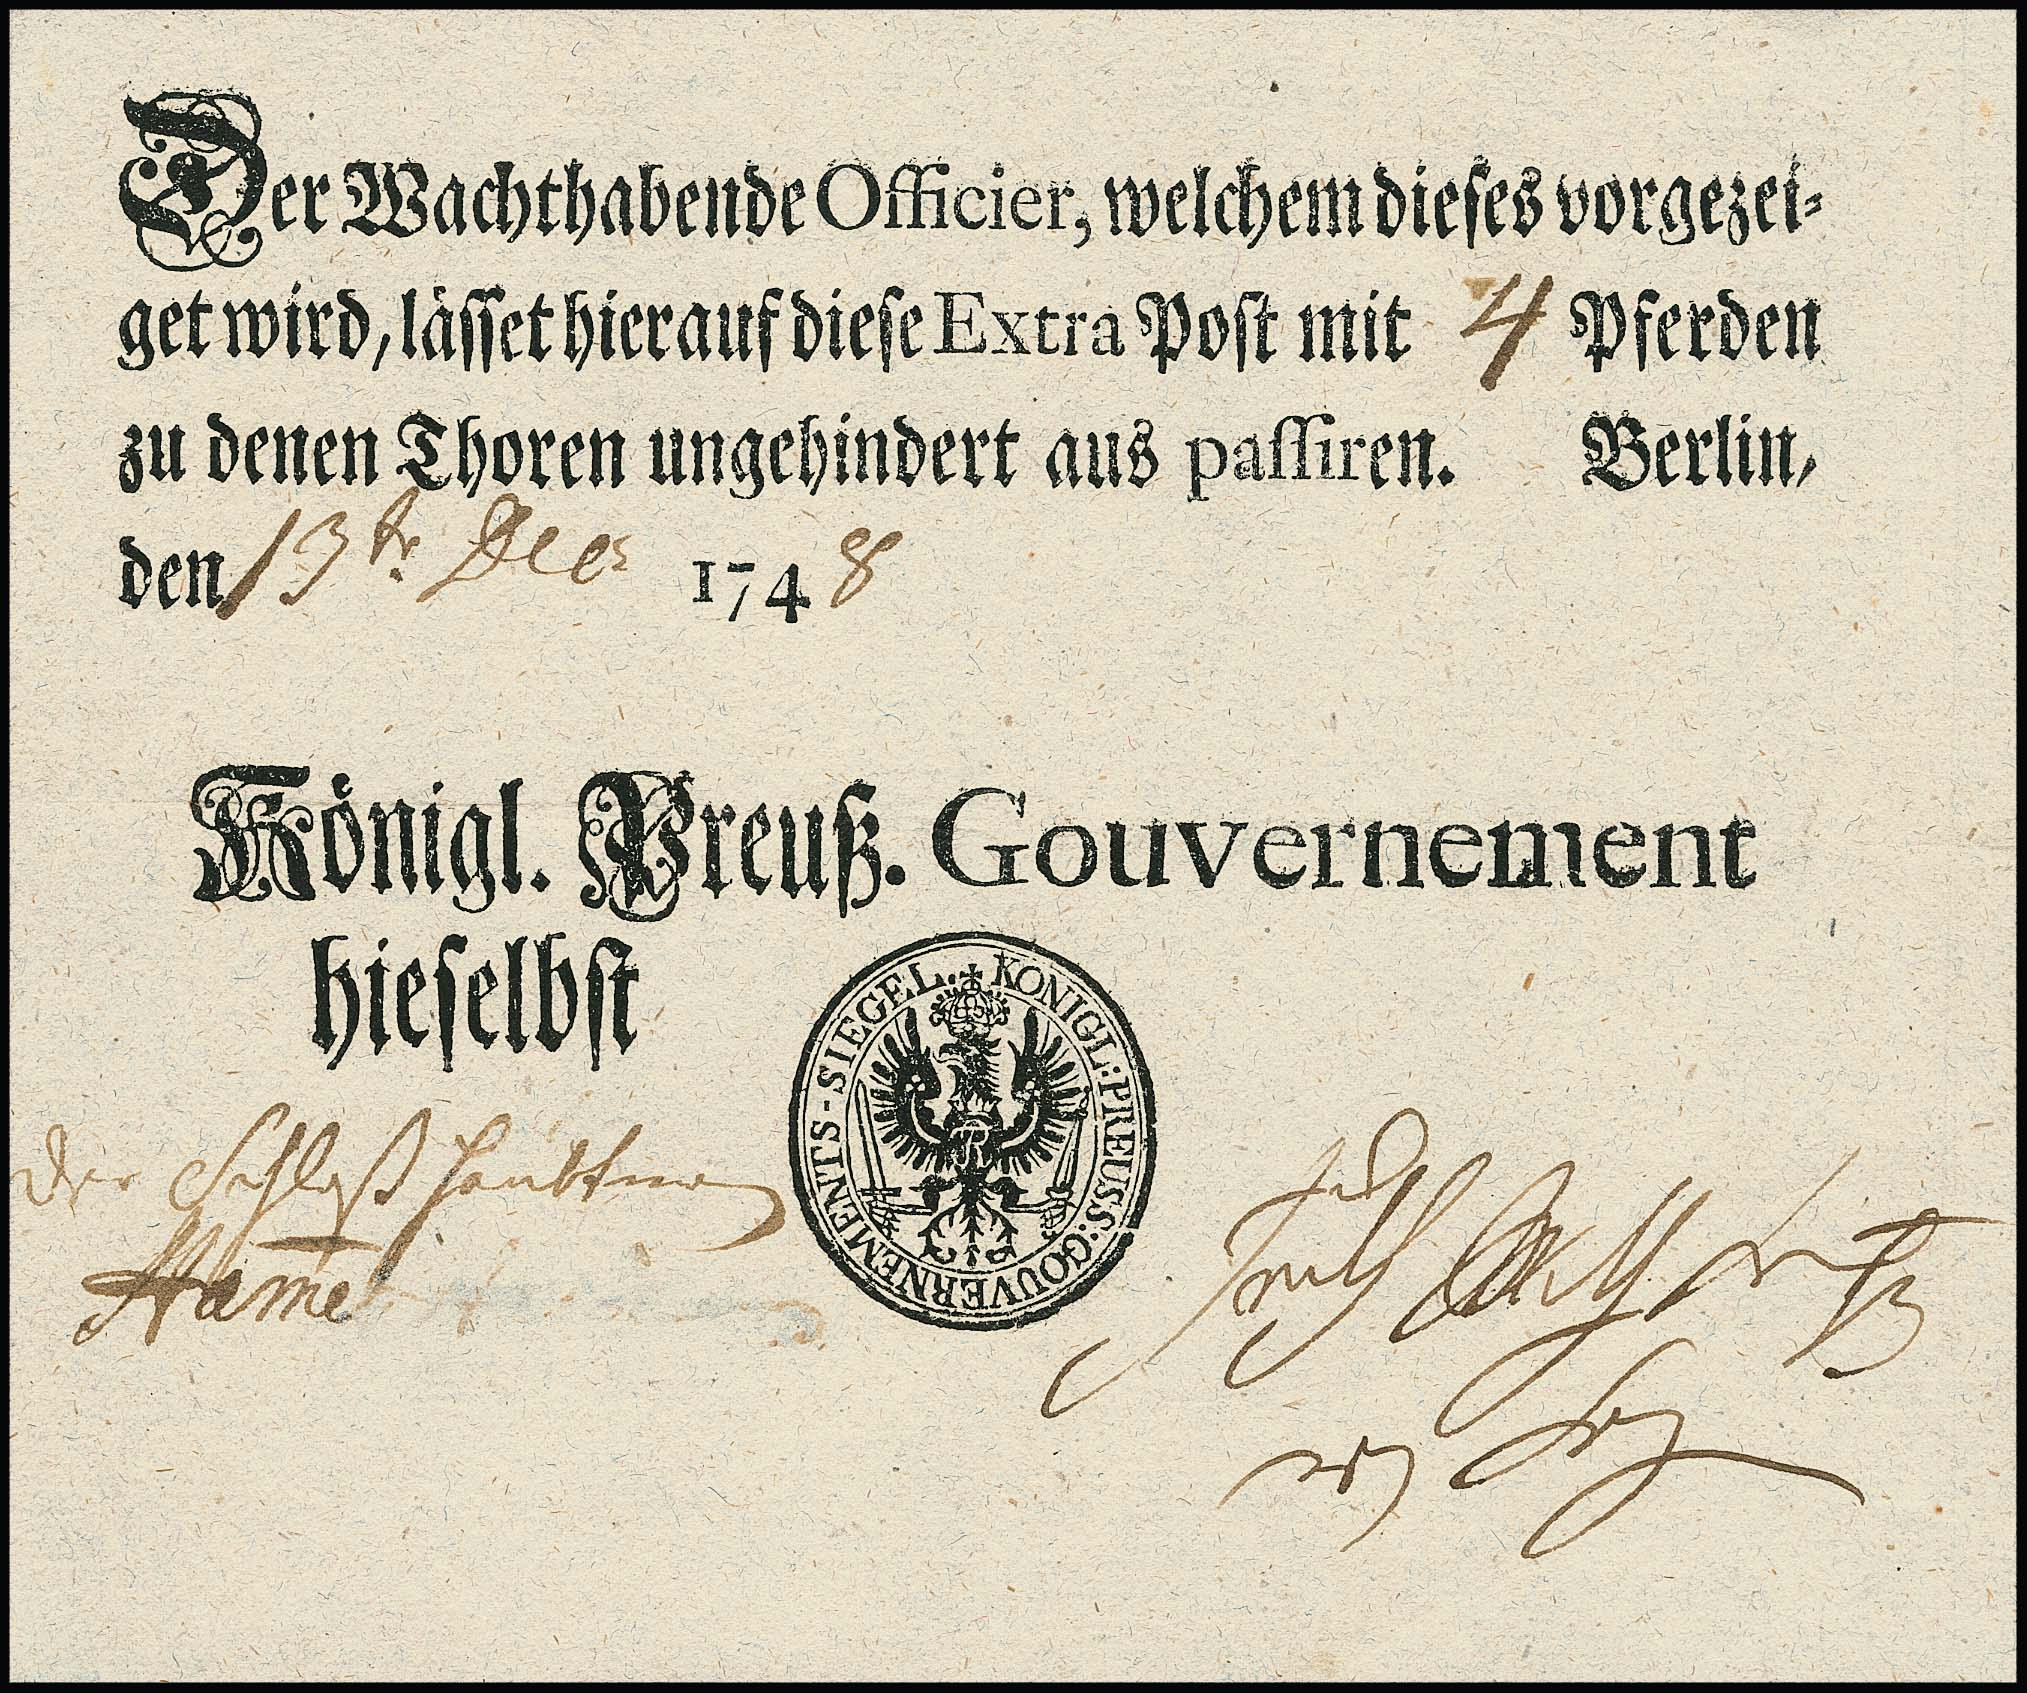 Der Wachthabende Officier, welchem dieses vorgezei-
get wird, lässet hierauf diese Extra Post mit 4 Pferden
zu denen Thoren ungehindert aus passiren. Berlin,
den 13tr Decr 1748
Königl. Preuß. Gouvernement
hieselbst
KONIGL: PREUSS: GOUVERNEMENTS-SIEGEL.
FR
Der Schloß Haubtman